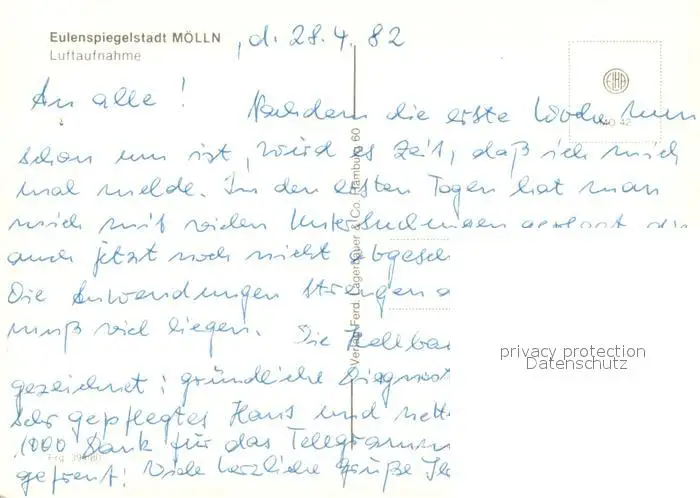 Eulenspiegelstadt MÖLLN
Luftaufnahme
, d. 28.4.82
An alle!
Nachdem die erste Woche nun
schon um ist, wird es Zeit, daß ich mich
mal melde. In den ersten Tagen hat man
mich mit vielen Untersuchungen geplagt, die
auch jetzt noch nicht abgesch
Die Anwendungen strengen a
muß viel liegen. Die
gezeichnet: gründliche Diagnost
Sehr gepflegtes Haus und nett
1000 Dank für das Telegramm
gefreut! Viele herzliche Grüße
Verlag Ferd. Lagerbauer & Co. Hamburg 60
privacy protection
Datenschutz